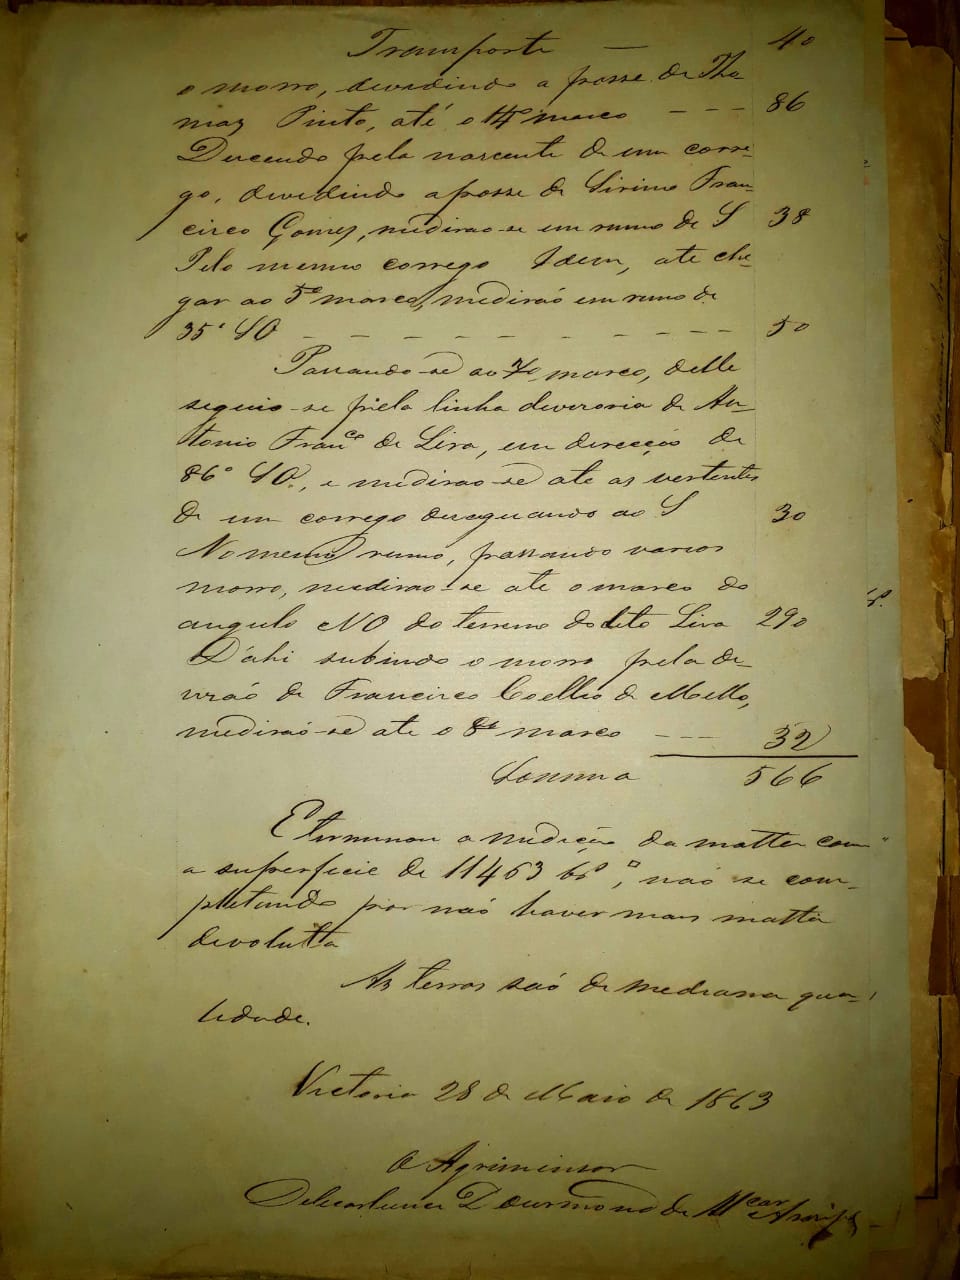 Transporte — 40
o morro, devedindo a posse de Tho
maz Pinto, até o 14º marco - - - 86
Descendo pela nascente de um corre-
go, devedindo a posse de Sirino Fran-
cisco Gomes, medirão-se em rumo de S 38
Pelo mesmo corrego Idem, ate che-
gar ao 5º marco, medirão em rumo de
35º SO - - - - - - - - - - 50
Passando-se ao 7º marco, delle
seguio-se pela linha deveroria de An-
tonio Franco de Lira, em direcção de
86º SO, e medirão-se ate as vertentes
de um corrego desaguando ao S 30
No mesmo rumo, passando varios
morro, medirão-se ate o marco do
angulo NO do terreno do dito Lira 290
D'ahi subindo o morro pela de-
vizão de Francisco Coelho de Mello,
medirão-se ate o 8º marco - - - 32
Somma 566
E terminou a medição da matta com
a superficie de 11463 bs□, não se com-
pletando por não haver mais matta
devoluta
As terras são de mediana qua-
lidade.
Victoria 28 de Maio de 1863
O Agrimensor
Deleartuner Dourmond de